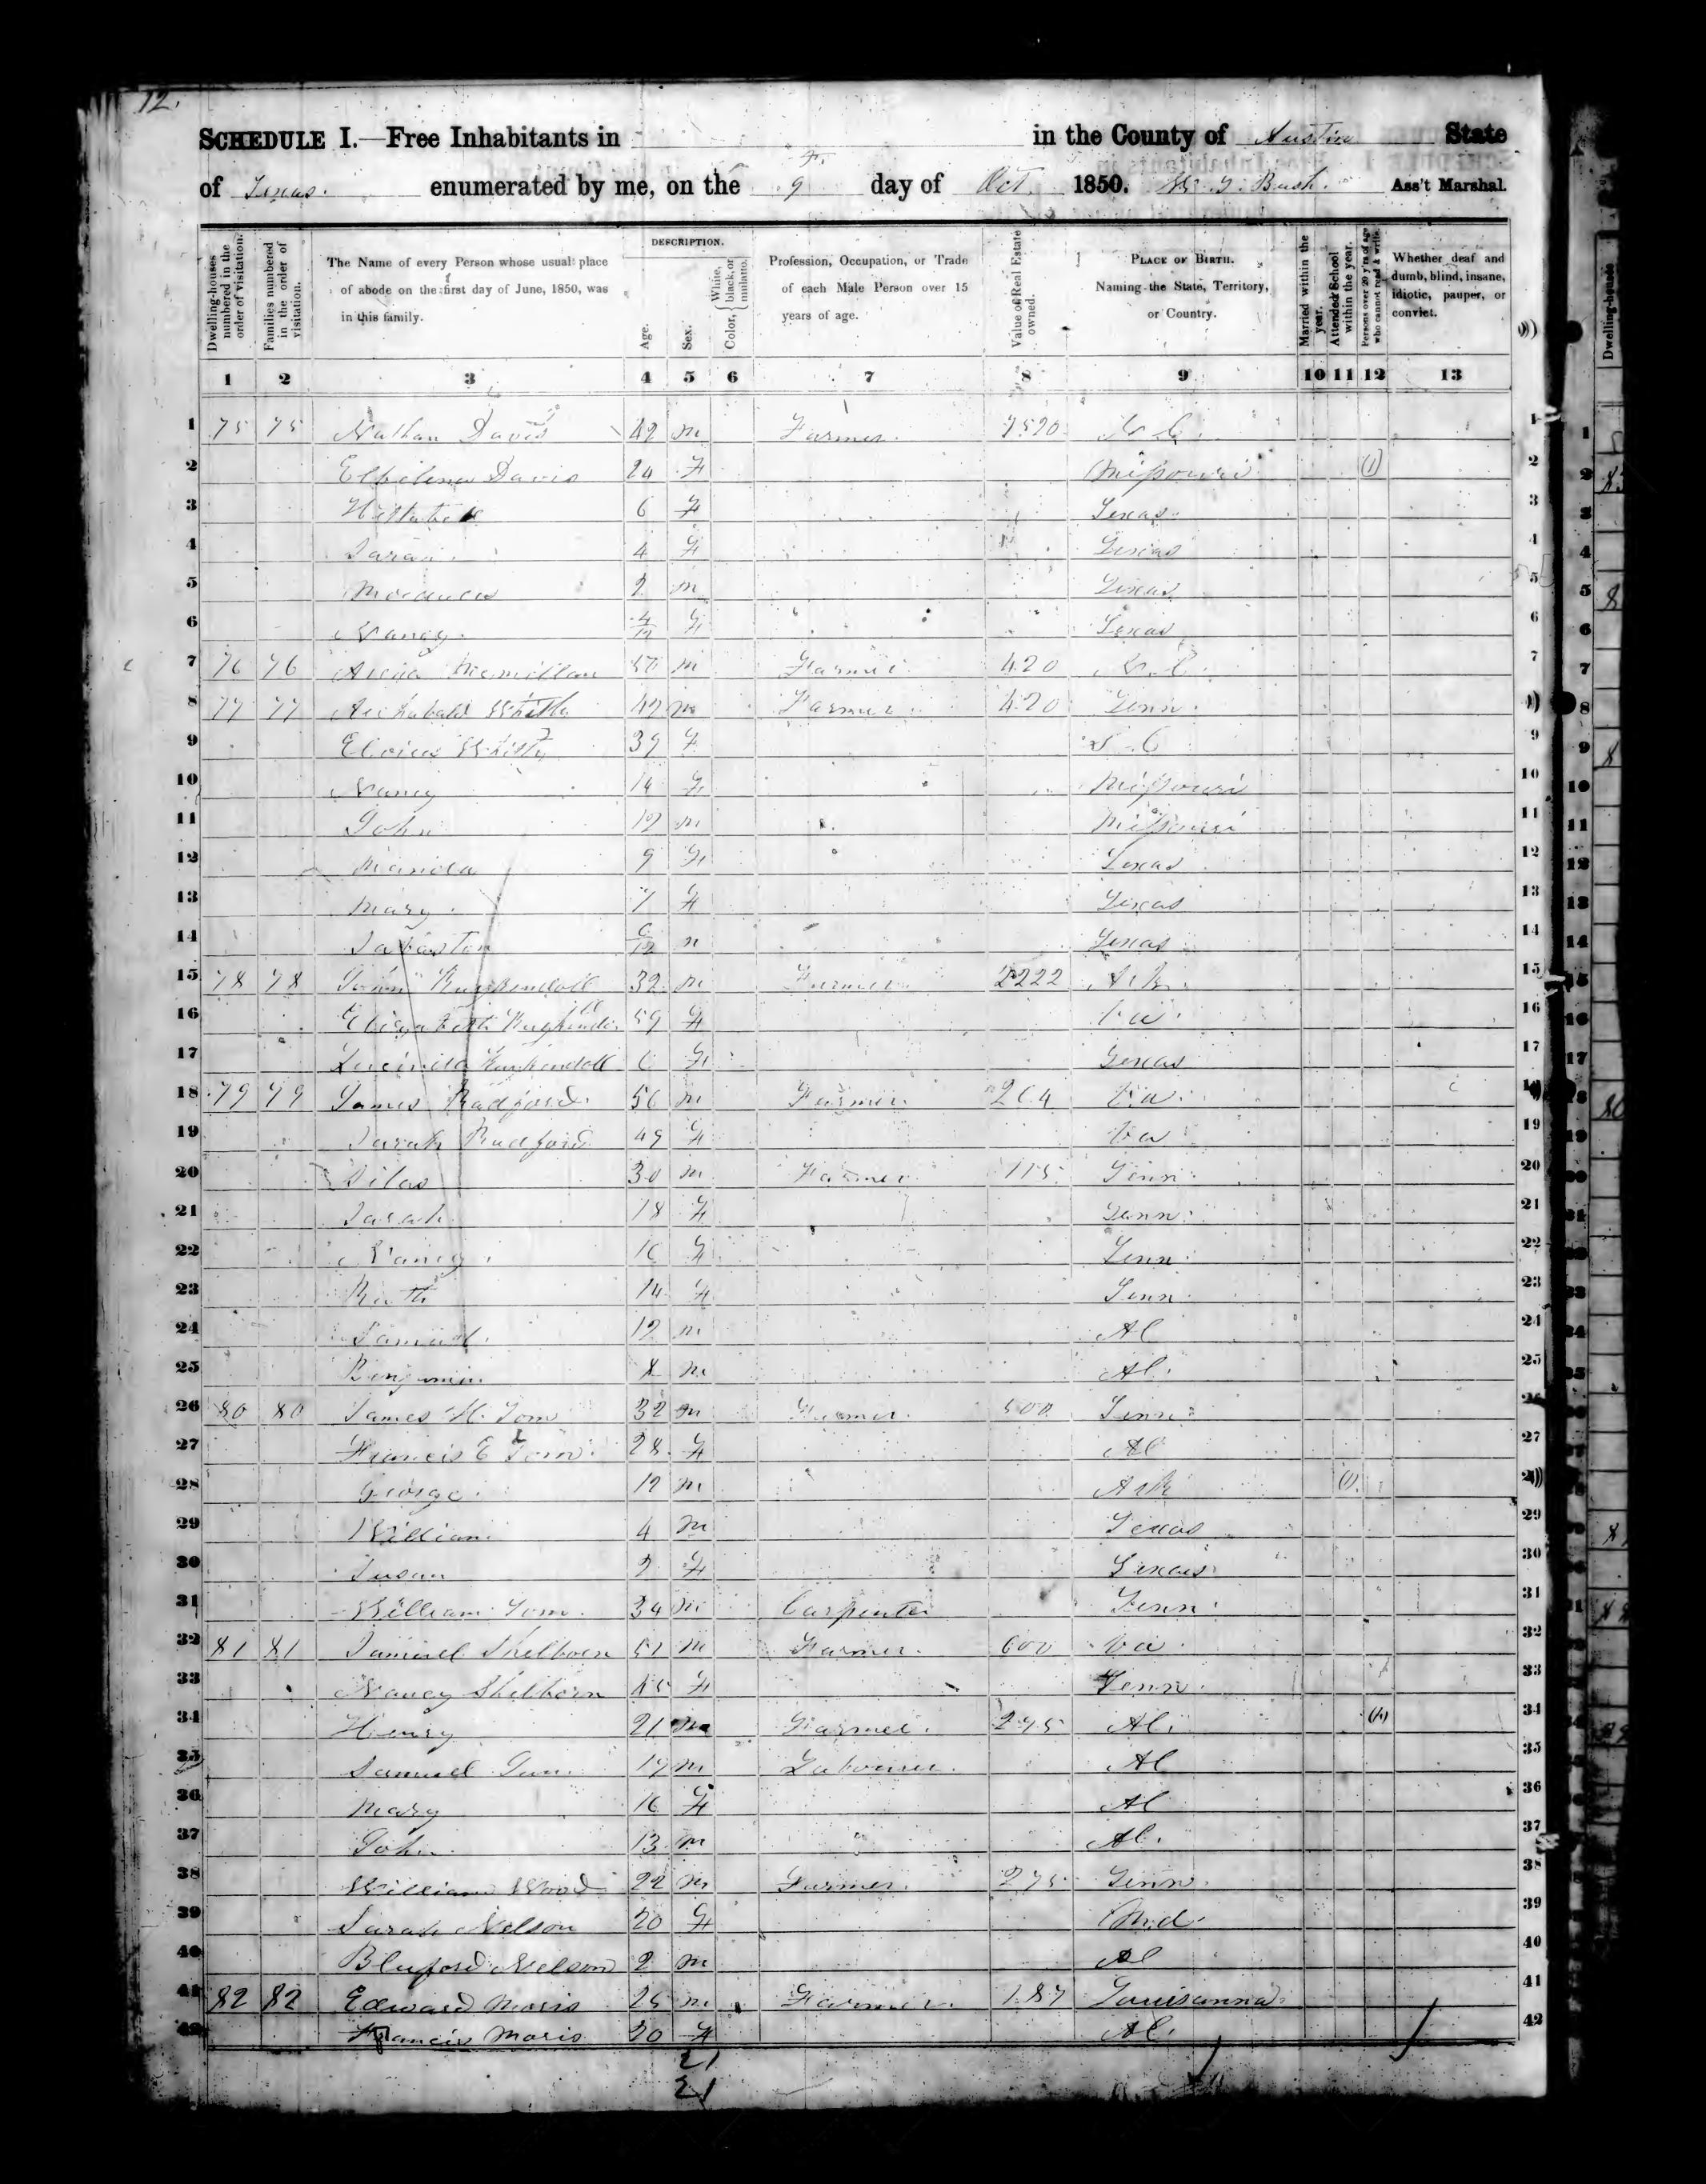 12.
SCHEDULE I.—Free Inhabitants in in the County of Austin State
of Texas. enumerated by me, on the 9 day of Oct 1850. Bush. Ass't Marshal.
Dwelling-houses numbered in the order of visitation.
Families numbered in the order of visitation.
The Name of every Person whose usual place of abode on the first day of June, 1850, was in this family.
DESCRIPTION.
Age.
Sex.
Color, { White, black, or mulatto.
Profession, Occupation, or Trade of each Male Person over 15 years of age.
Value of Real Estate owned.
PLACE OF BIRTH. Naming the State, Territory, or Country.
Married within the year.
Attended School within the year.
Persons over 20 y'rs of age who cannot read & write.
Whether deaf and dumb, blind, insane, idiotic, pauper, or convict.
1 2 3 4 5 6 7 8 9 10 11 12 13
1 75 75 Nathan Davis 42 m Farmer. 7520 N. C. 1
2 Davis 24 F Missouri (1) 2
3 6 F Texas 3
4 Sarah 4 F Texas 4
5 2 m Texas 5
6 Nancy. 4/12 F Texas 6
7 76 76 McMillan m Farmer 420 N. C. 7
8 77 77 Archabald m Farmer 420 Tenn. 8
9 39 F S C 9
10 Nancy 14 F Missouri 10
11 John 12 m Missouri 11
12 9 F Texas 12
13 Mary. 7 F Texas 13
14 6/12 m Texas 14
15 78 78 Kuykendall 32 m Farmer 2222 Ark. 15
16 Elizabeth 59 F Va. 16
17 Lucinda Kuykendall 6 F Texas 17
18 79 79 James Radford 56 m Farmer. 264 Va. 18
19 Sarah Radford 49 F Va 19
20 Silas 30 m Farmer 115 Tenn. 20
21 Sarah 18 F Tenn. 21
22 Nancy. 16 F Tenn. 22
23 Ruth 14 F Tenn. 23
24 Samuel. 12 m Al 24
25 Benjamin. 8 m Al. 25
26 80 80 James H. Tom 32 m Farmer. 500 Tenn. 26
27 Francis E Tom. 28 F Al 27
28 George. 12 m Ark (1) 28
29 William. 4 m Texas 29
30 Susan 2 F Texas 30
31 William Tom. 34 m Carpenter Tenn. 31
32 81 81 Samuel Shelborn 51 m Farmer. 600 Va. 32
33 Nancy Shelborn 45 F Tenn. 33
34 Henry 21 m Farmer. 275 Al. (1) 34
35 Samuel m Labourer. Al 35
36 Mary 16 F Al 36
37 John. 13 m Al. 37
38 William Wood 22 m Farmer. 275 Tenn. 38
39 Sarah Nelson 20 F Md. 39
40 Bluford Nelson 2 m Al 40
41 82 82 Edward Moris 25 m Farmer. 187 Louisanna. 41
42 Francis Moris 20 F Al. 42
21
21